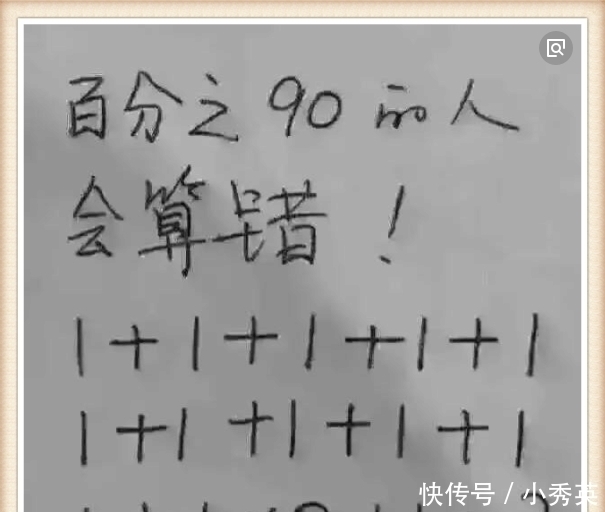 百分之90的人
会算错！
1+1+1+1+1
1+1+1+1+1
快传号/小秀英